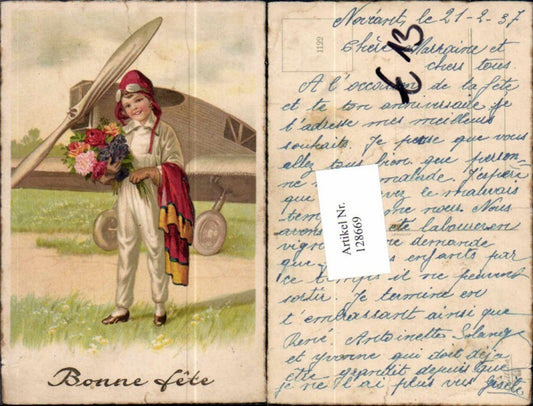 Bonne fête
1122
€ 13
Novéant, le 21-2-37
Chère Marraine et
chers tous.
A l'occasion de la fête
et de ton anniversaire je
t'adresse mes meilleurs
souhaits. Je pense que vous
allez tous bien que person-
ne malade. J'espère
que avez le mauvais
temps comme nous. Nous
avons été labourer on
vigne demande
que enfants par
ce temps il ne peuvent
sortir. Je termine en
t'embrassant ainsi que
René. Antoinette Solange
et Yvonne qui doit déjà
être grandit depuis que
je ne l'ai plus vus Gisèle
Artikel Nr.
128669